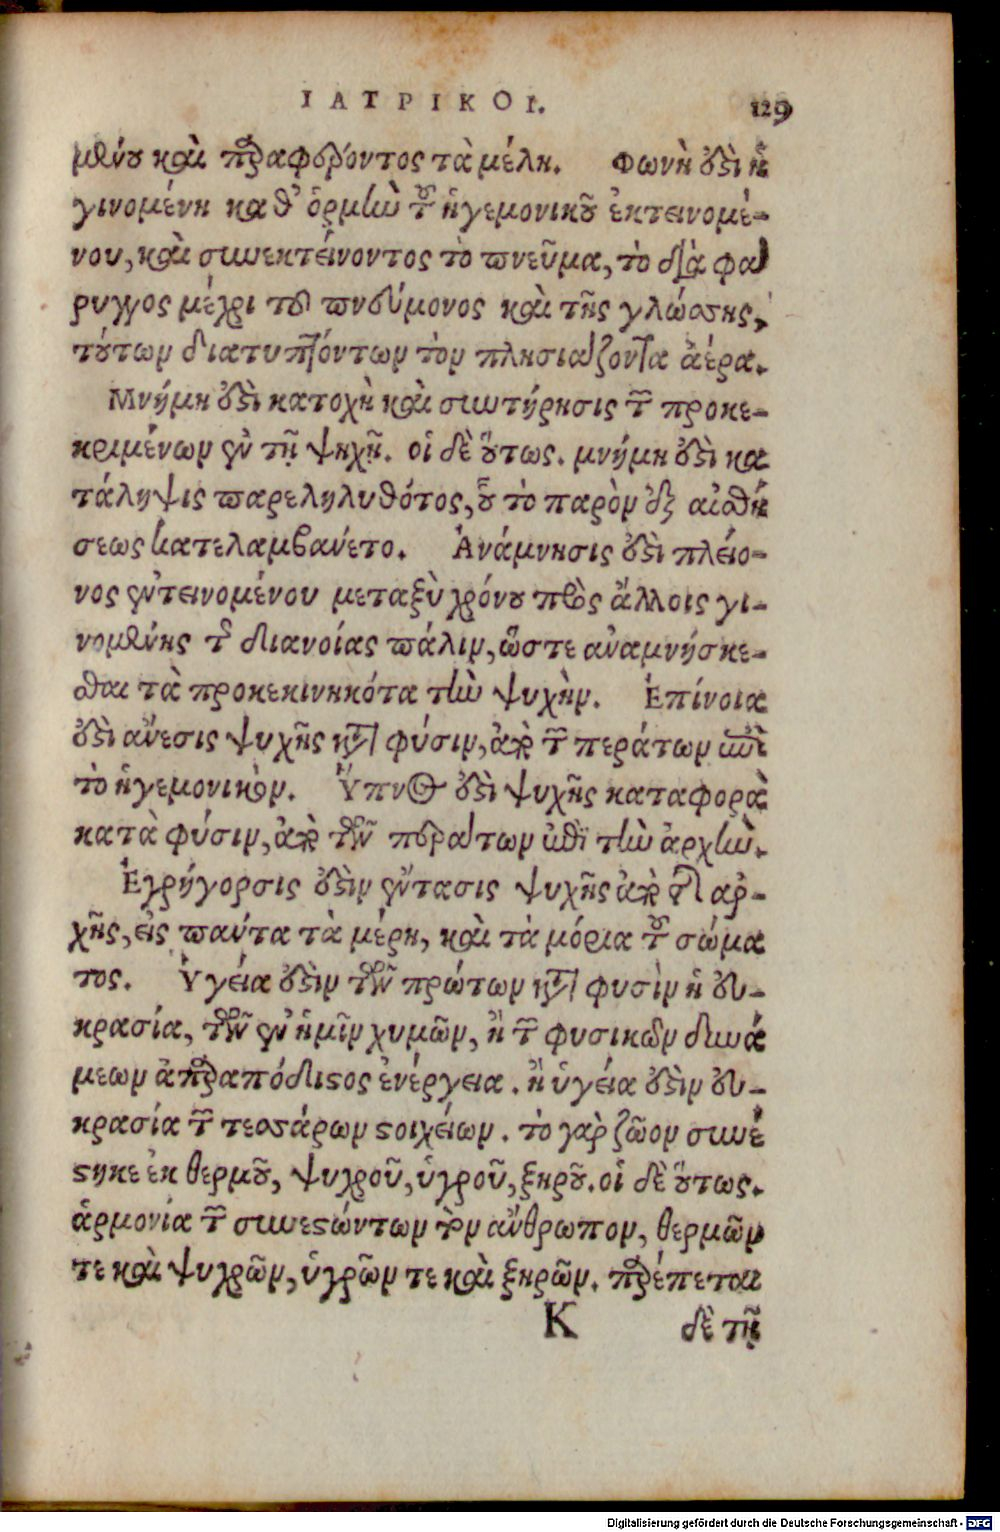 ΙΑΤΡΙΚΟΙ. 129
μένου καὶ παραφέροντος τὰ μέλη. Φωνὴ ἐστὶ ἡ
γινομένη καθ' ὁρμὴν τοῦ ἡγεμονικοῦ ἐκτεινομέ-
νου, καὶ συνεκτείνοντος τὸ πνεῦμα, τὸ διὰ φα
ρυγγος μέχρι τοῦ πνεύμονος καὶ τῆς γλώσσης,
τούτων διατυπούντων τὸν πλησιάζοντα ἀέρα.
Μνήμη ἐστὶ κατοχὴ καὶ συντήρησις τῶν προκε-
κριμένων ἐν τῇ ψηχῇ. οἱ δὲ οὕτως. μνήμη ἐστὶ κα
τάληψις παρεληλυθότος, οὗ τὸ παρὸν ἐξ αἰσθή
σεως κατελαμβανετο. Ἀνάμνησις ἐστὶ πλείο-
νος ἐντεινομένου μεταξὺ χρόνου πρὸς ἄλλοις γι-
νομένης τῆς διανοίας πάλιν, ὥστε ἀναμνήσκε-
σθαι τὰ προκεκινηκότα τὴν ψυχὴν. Ἐπίνοια
ἐστὶ ἄνεσις ψυχῆς κατὰ φύσιν, ἀπὸ τῶν περάτων ἐπὶ
τὸ ἡγεμονικὸν. Ὕπνος ἐστὶ ψυχῆς καταφορὰ
κατὰ φύσιν, ἀπὸ τῶν περάτων ἐπὶ τὴν ἀρχὴν.
Ἐγρήγορσις ἐστὶν ἔντασις ψυχῆς ἀπὸ τῆς ἀρ-
χῆς, εἰς πάντα τὰ μέρη, καὶ τὰ μόρια τοῦ σώμα
τος. Ὑγεία ἐστὶν τῶν πρώτων κατὰ φυσὶν ἡ εὐ-
κρασία, τῶν ἐν ἡμῖν χυμῶν, ἢ τῶν φυσικῶν δυνά
μεων ἀπαραπόδιστος ἐνέργεια. ἢ ὑγεία ἐστὶν εὐ-
κρασία τῶν τεσσάρων στοιχείων. τὸ γὰρ ζῶον συνέ
στηκε ἐκ θερμοῦ, ψυχροῦ, ὑγροῦ, ξηροῦ. οἱ δὲ οὕτως.
ἁρμονία τῶν συνεστώντων τὸν ἄνθρωπον, θερμῶν
τε καὶ ψυχρῶν, ὑγρῶν τε καὶ ξηρῶν. παρέπεται
K δὲ τῇ
Digitalisierung gefördert durch die Deutsche Forschungsgemeinschaft - DFG